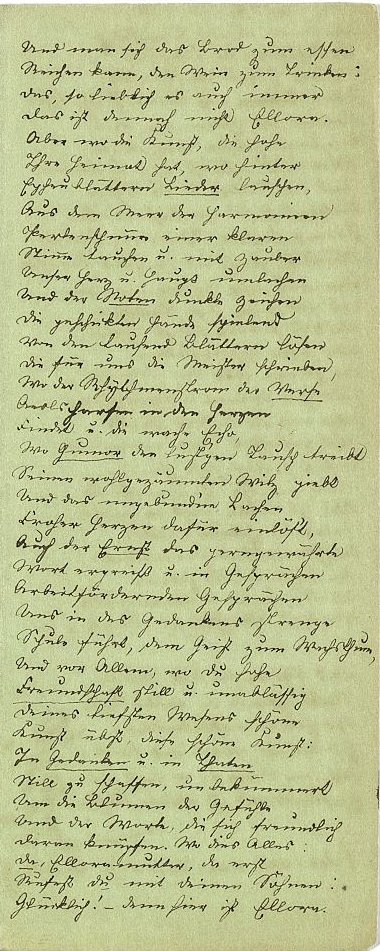 Und man sich das Brod zum essen
Reichen kann, den Wein zum Trinken:
Das, so lieblich es auch immer
Das ist dennoch nicht Ellora.
Aber wo die Kunst, die hohe
Ihre Heimat hat, wo hinter
Epheublättern Lieder lauschen,
Aus dem Meer der Harmonieen
Perlenschnüre einer klaren
Stimme tauchen u. mit Zauber
Unser Herz u. Haupt umlachen
Und der Noten dunkle Zeichen
Die geschickten Hände spielend
Von den tausend Blättern lösen
Die für uns die Meister schrieben,
Wo der Rhythmenstrom der Verse
Aeolsharfen in den Herzen
Findet u. die wache Echo,
Wo Humor den lustgen Tausch treibt
Seinen wohlgezäumten Witz giebt
Und das ungebundne Lachen
Froher Herzen dafür einlöst,
Auch der Ernst das gerngewährte
Wort ergreift u. in Gesprächen
Arbeitfördernden Gesprächen
Uns in des Gedankens strenge
Schule führt, dem Geist zum Wachsthum,
Und vor Allem, wo du hohe
Freundschaft still u. unablässig
Deines tiefsten Wesens schöne
Kunst übst, diese schöne Kunst:
In Gedanken u. in Thaten
Still zu schaffen, unbekümmert
Um die Blumen der Gefühle
Und der Worte, die sich freundlich
Daran knüpfen. Wo dies Alles:
Da, Elloramutter, da erst
Rufest du mit deinen Söhnen:
Glücklich! – denn hier ist Ellora.